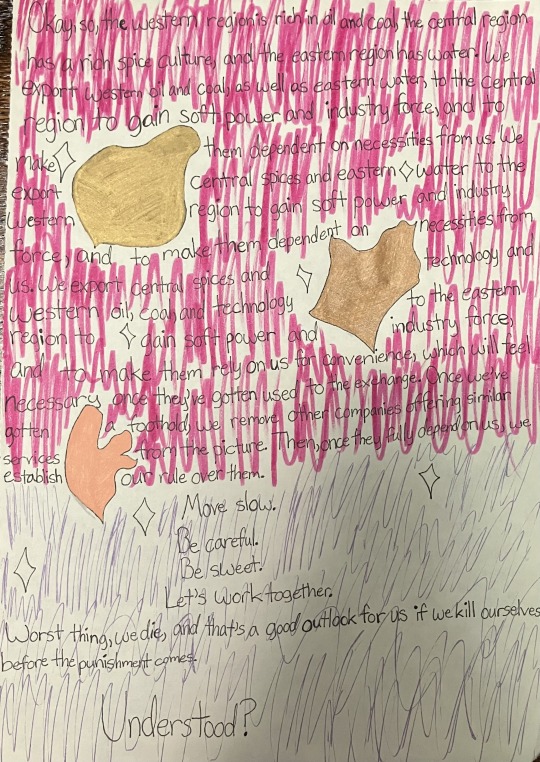 Okay, so, the western region is rich in oil and coal, the central region
has a rich spice culture, and the eastern region has water. We
export western oil and coal, as well as eastern water, to the central
region to gain soft power and industry force, and to
make them dependent on necessities from us. We
export central spices and eastern water to the
western region to gain soft power and industry
force, and to make them dependent on necessities from
us. We export central spices and technology and
western oil, coal, and technology to the eastern
region to gain soft power and industry force,
and to make them rely on us for convenience, which will feel
necessary once they've gotten used to the exchange. Once we've
gotten a foothold, we remove other companies offering similar
services from the picture. Then, once they fully depend on us, we
establish our rule over them.
Move slow.
Be careful.
Be sweet.
Let's work together.
Worst thing, we die, and that's a good outlook for us if we kill ourselves
before the punishment comes.
Understood?